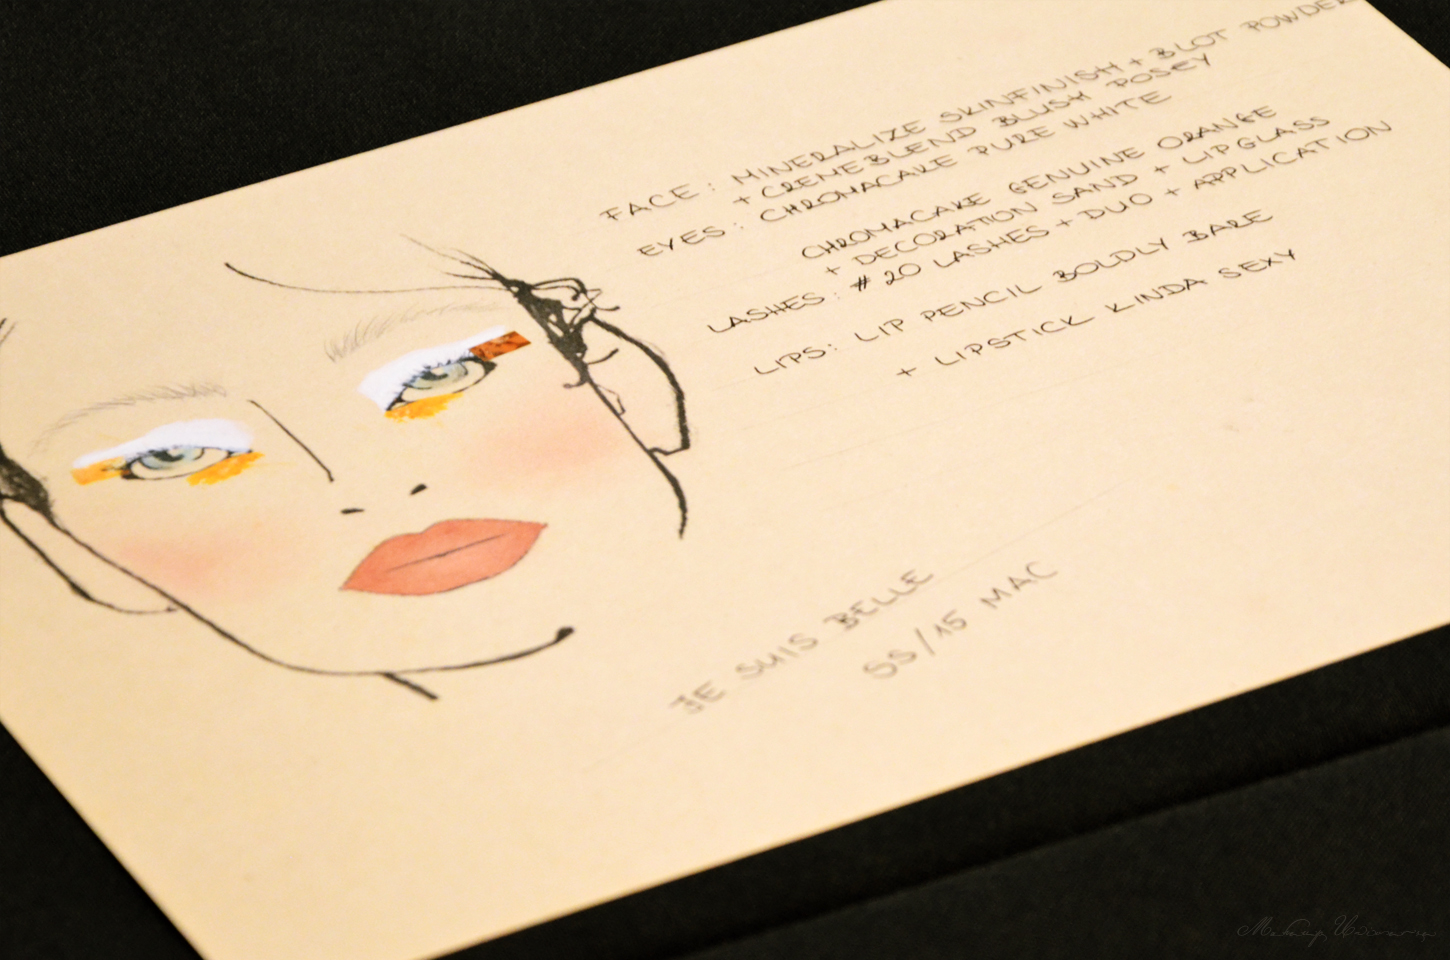 FACE: MINERALIZE SKINFINISH + BLOT POWDER
+ CREMEBLEND BLUSH POSEY
EYES: CHROMACAKE PURE WHITE
CHROMACAKE GENUINE ORANGE
+ DECORATION SAND + LIPGLASS
LASHES: # 20 LASHES + DUO + APPLICATION
LIPS: LIP PENCIL BOLDLY BARE
+ LIPSTICK KINDA SEXY
JE SUIS BELLE
SS/15 MAC